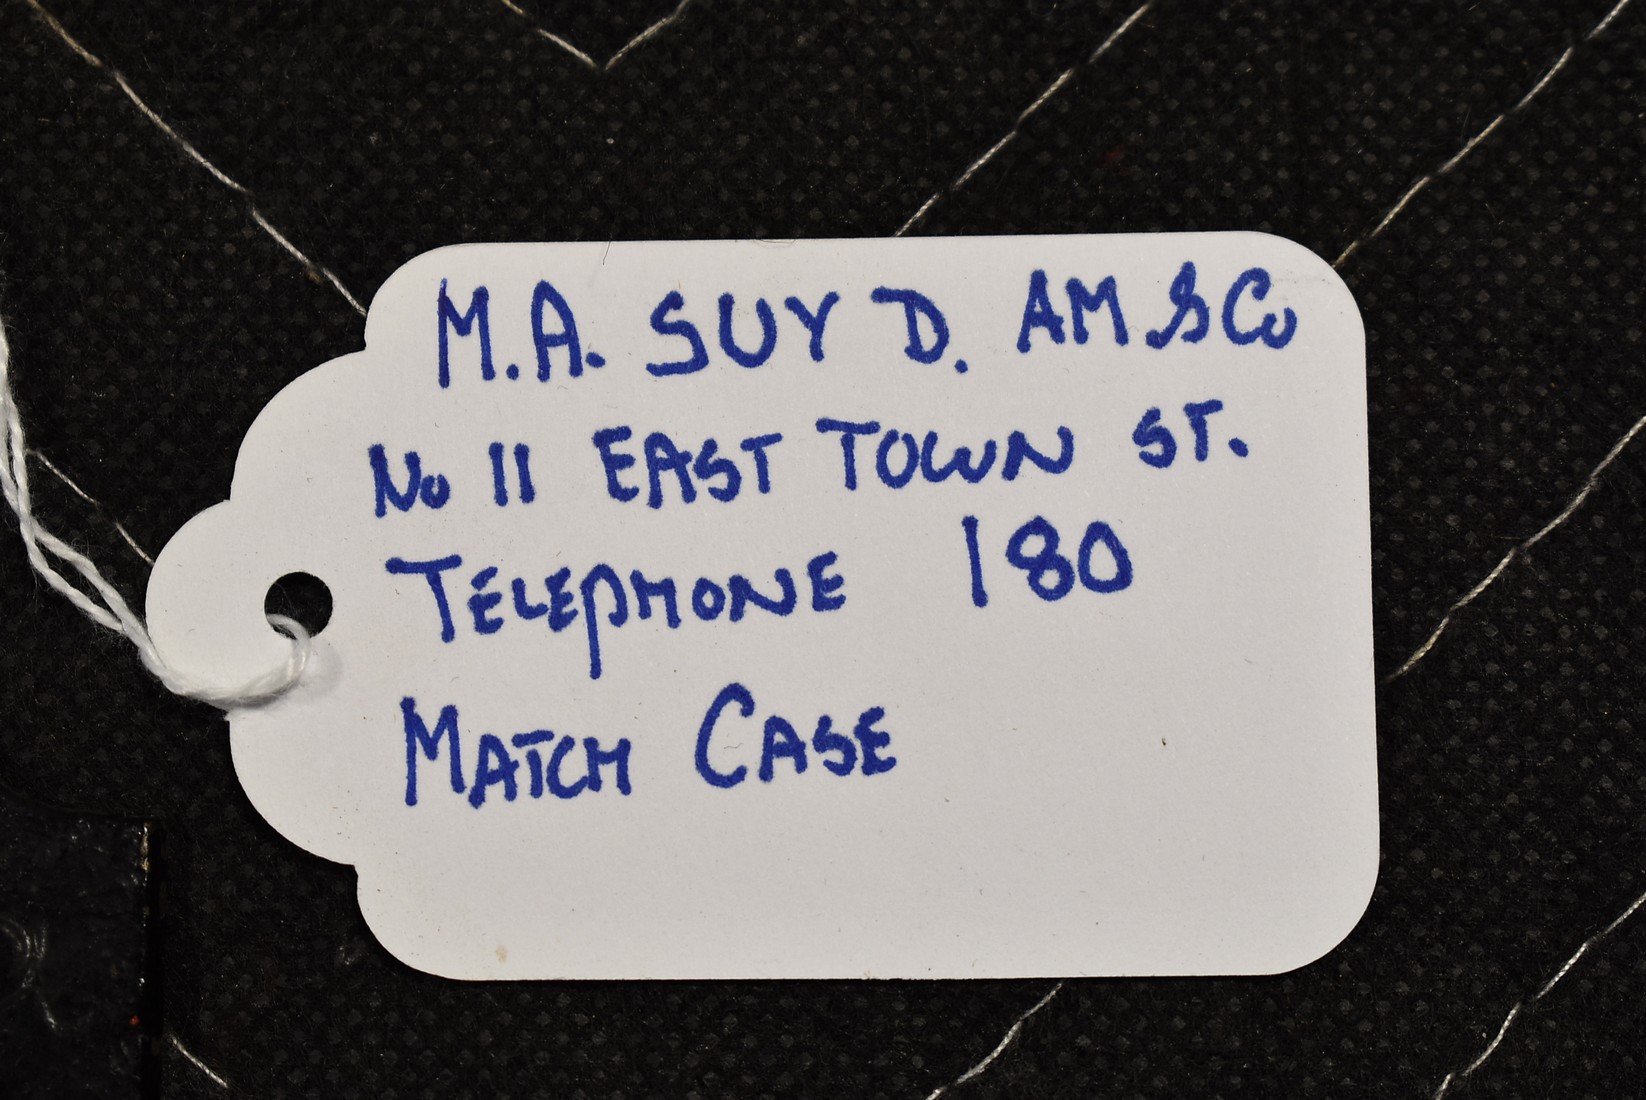 M.A. SUY D. AM & Co
No 11 EAST TOWN ST.
TELEPHONE 180
MATCH CASE